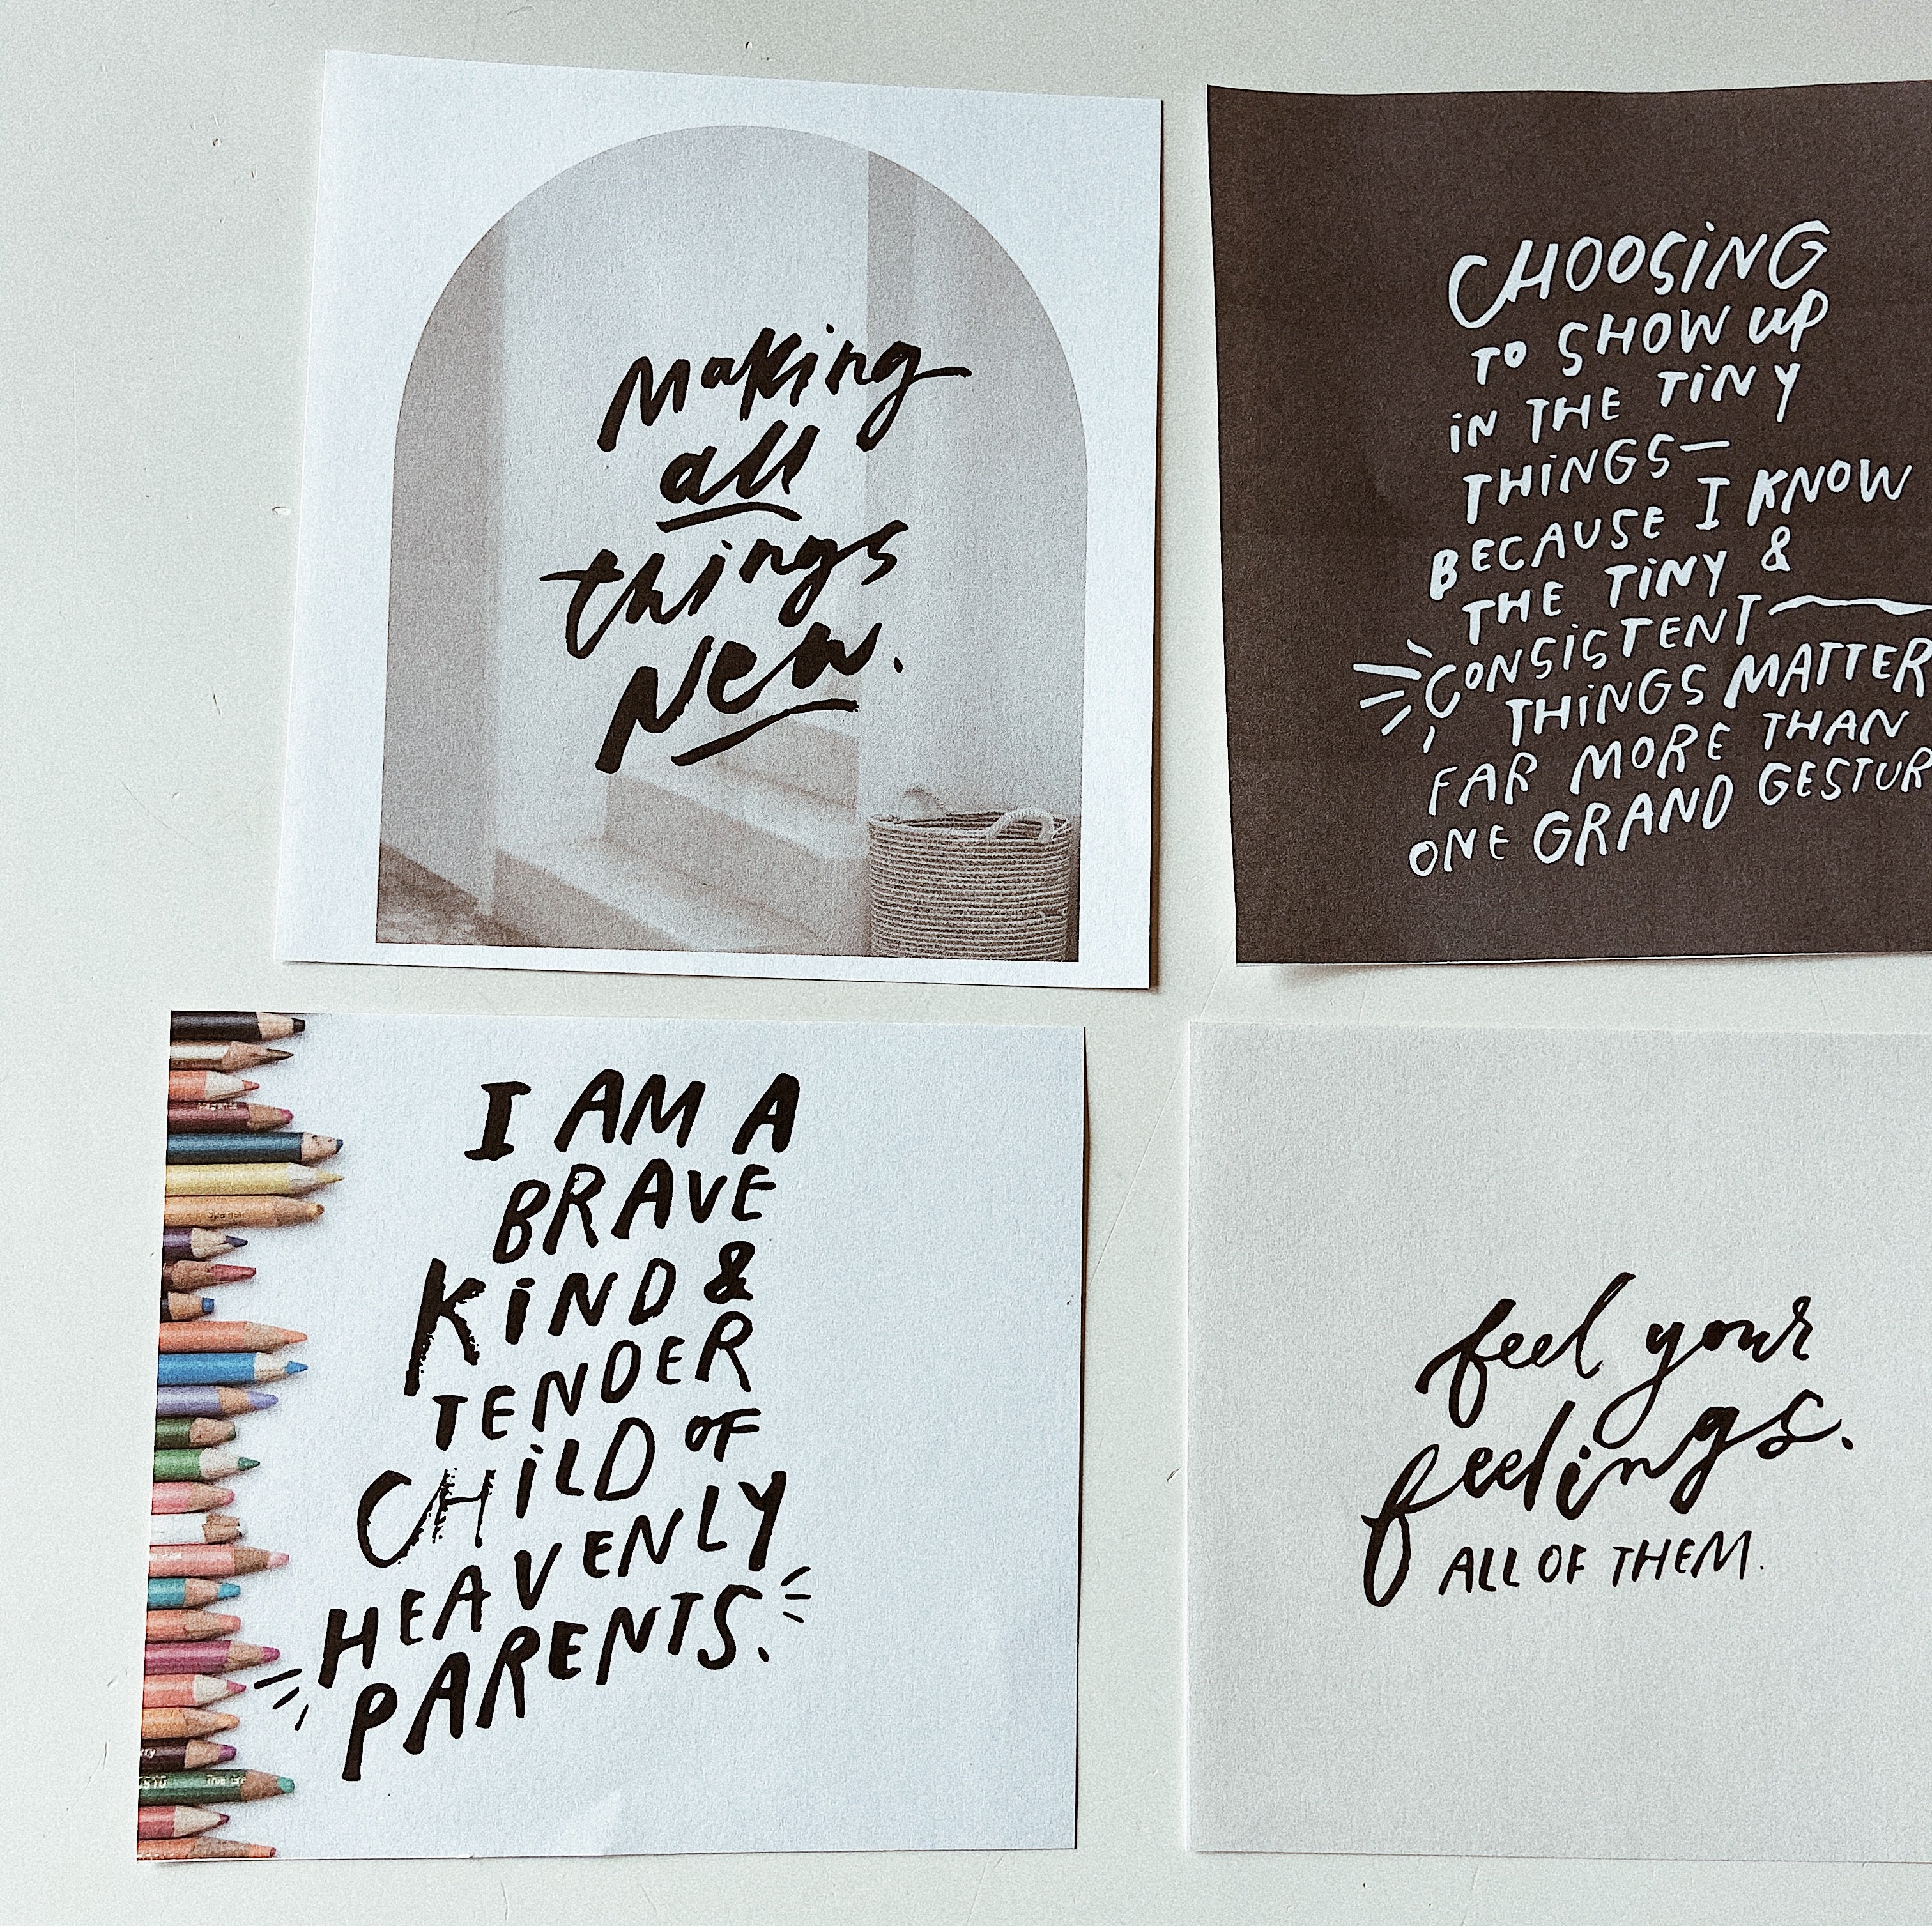 Making
all
things
New.
CHOOSING
TO SHOW UP
IN THE TINY
THINGS—
BECAUSE I KNOW
THE TINY &
CONSISTENT
THINGS MATTER
FAR MORE THAN
ONE GRAND GESTUR
I AM A
BRAVE
KIND &
TENDER
CHILD OF
HEAVENLY
PARENTS.
feel your
feelings.
ALL OF THEM.